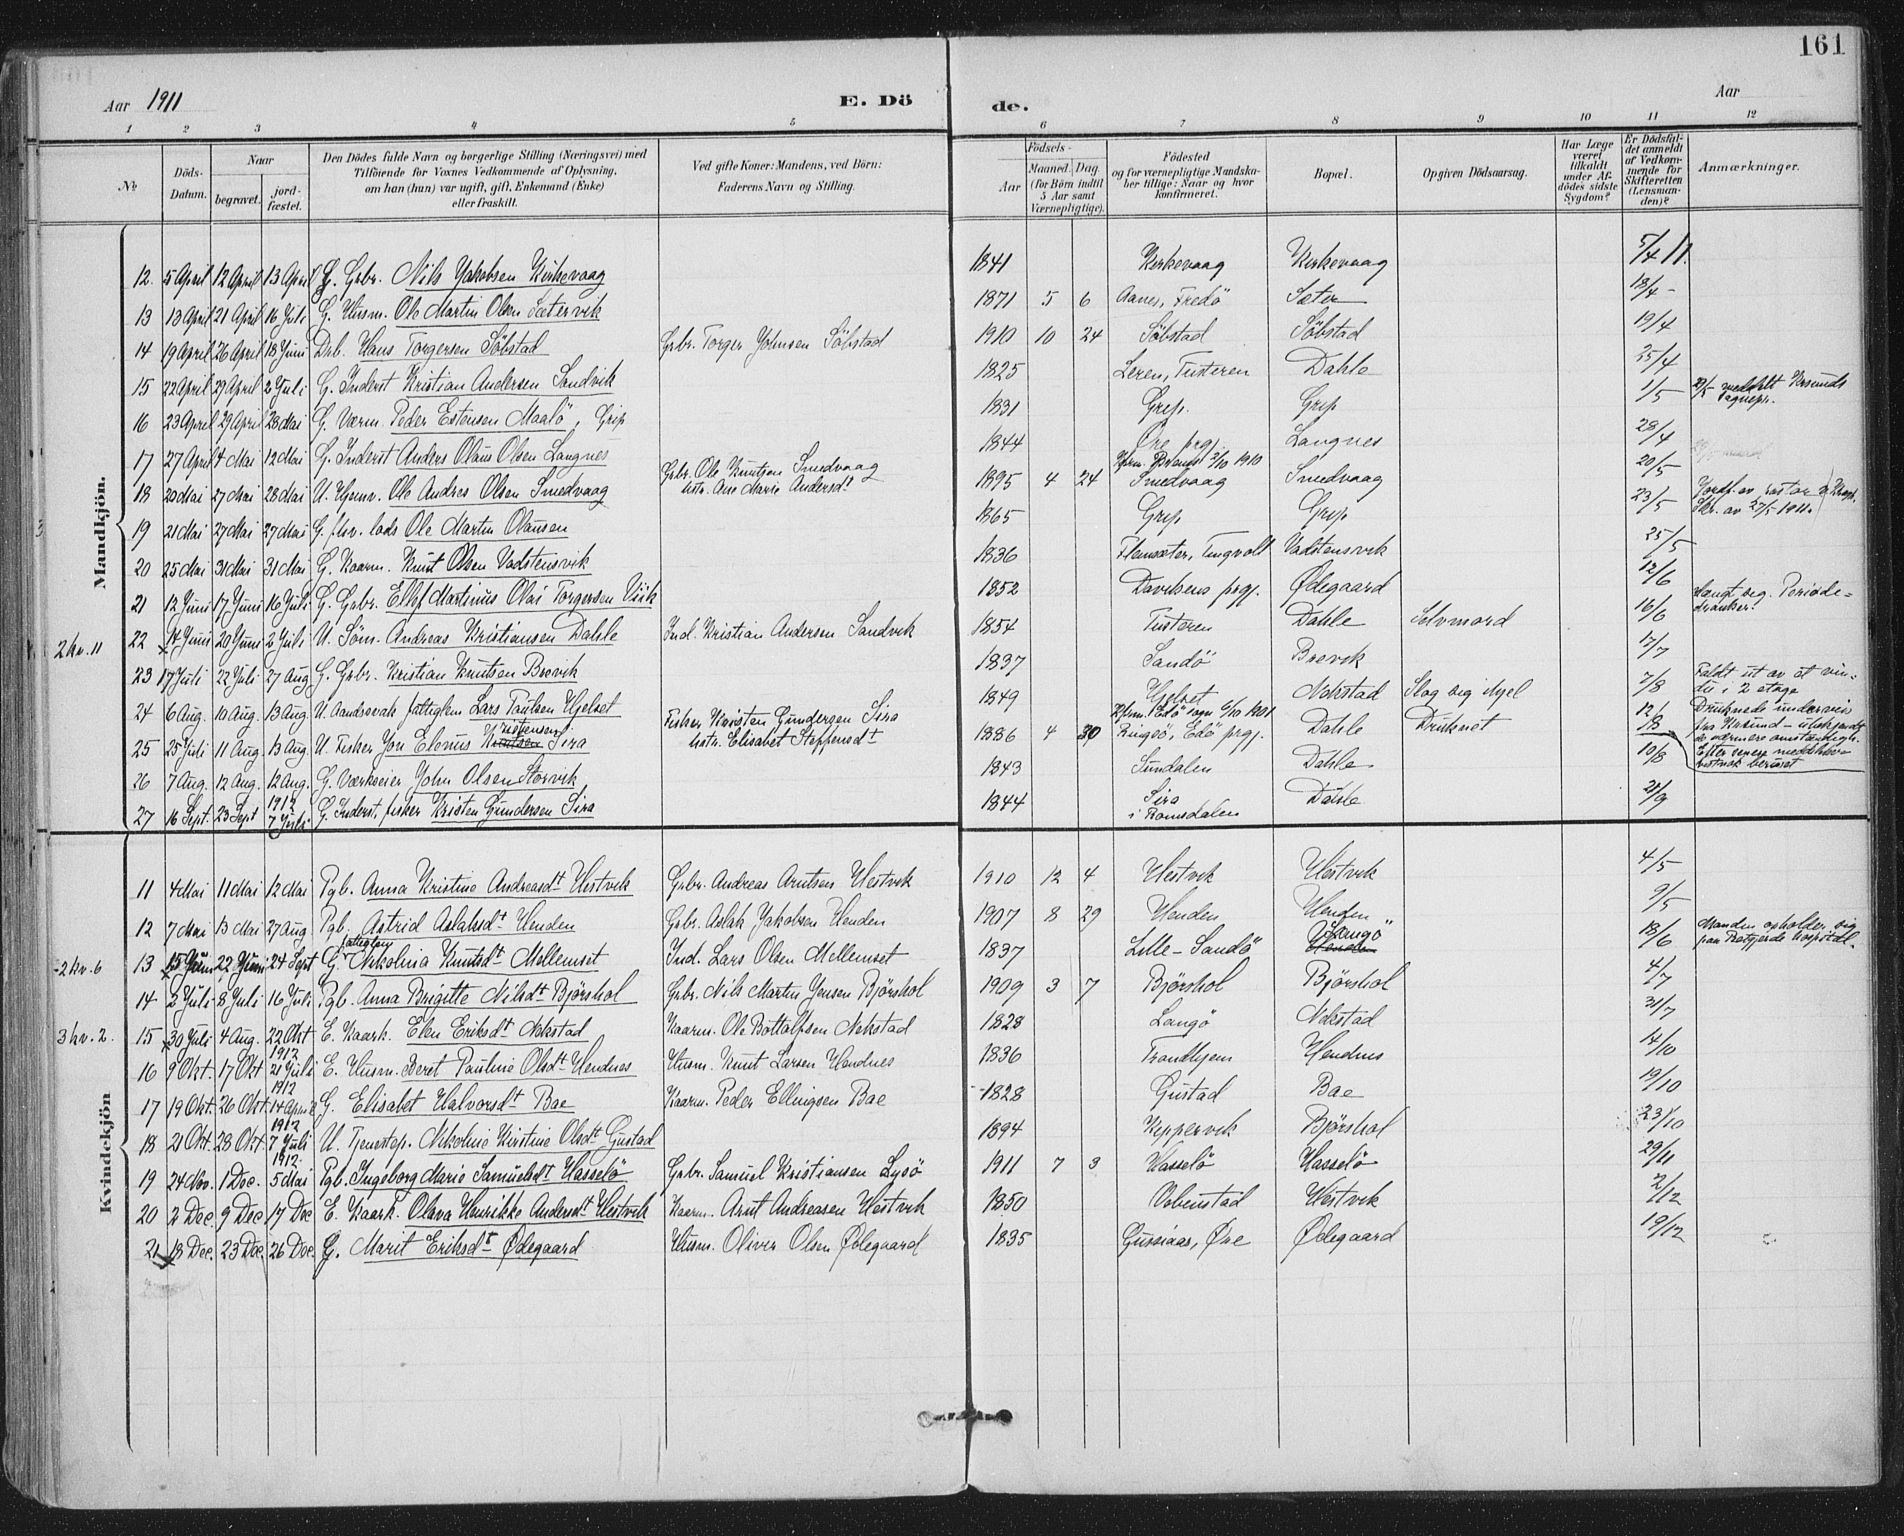 161
Aar 1911
E. Dö
de.
Aar
1 2 3 4 5 6 7 8 9 10 11 12
No
Döds-Datum.
Naar
begravet.
jord-fæstet.
Den Dödes fulde Navn og borgerlige Stilling (Næringsvei) med
Tilföiende for Voxnes Vedkommende af Oplysning,
om han (hun) var ugift, gift, Enkemand (Enke)
eller fraskilt.
Ved gifte Koner: Mandens, ved Börn:
Faderens Navn og Stilling.
Födsels-
Aar
Maaned. Dag.
(for Börn indtil
5 Aar samt
Værnepligtige).
Födested
og for værnepligtige Mandska-
ber tillige: Naar og hvor
konfirmeret.
Bopæl.
Opgiven Dödsaarsag.
Har Læge
været
tilkaldt
under Af-
dödes sidste
Sygdom?
Er Dödsfal-
det anmeldt
af Vedkom-
mende for
Skifteretten
(Lensman-
den)?
Anmærkninger.
Mandkjön.
12. 5 April 12 April 13 April G. Grbr. Nils Jakobsen Kirkevaag 1841 Kirkevaag Kirkevaag 5/4 11.
13 13 April 21 April 16 Juli G. Husm. Ole Martin Olsen Sætervik 1871 5 6 Aanes, Fredö Sæter 18/4 -
14 19 April 26 April 18 Juni Drb. Hans Torgersen Söbstad Grbr. Torger Johnsen Söbstad 1910 10 24 Söbstad Söbstad 19/4
15 22 April 29 April 2 Juli G. Inderst Kristian Andersen Sandvik 1825 Leren, Tusteren Dahle 25/4
16 23 April 29 April 28 Mai G. Værm. Peder Estensen Maalö, Grip 1831 Grip. Grip 1/5
17 27 April 4 Mai 12 Mai G. Inderst Anders Olaus Olsen Langnes 1844 Öre prgj. Langnes 28/4
18 20 Mai 27 Mai 28 Mai U. Hjmv. Ole Andres Olsen Smedvaag Grbr. Ole Knutsen Smedvaag
Hstr. Ane Marie Andersdt 1895 4 24 Kfrm. Brems. 2/10 1910
Smedvaag Smedvaag 20/5
19 21 Mai 27 Mai 27 Mai G. fhv. lods Ole Martin Olausen 1865 Grip Grip 23/5
20 25 Mai 31 Mai 31 Mai G. Kaarm. Knut Olsen Vadstensvik 1836 Flemsæter, Tingvoll Vadstensvik 25/5
21 12 Juni 17 Juni 16 Juli G. Grbr. Ellef Martinus Olai Torgersen Viik 1852 Davikens prgj. Ødegaard 12/6
2 kv. 11 22 14 Juni 20 Juni 2 Juli U. Söm. Andreas Kristiansen Dahle Ind. Kristian Andersen Sandvik 1854 Tusteren Dahle Selvmord 16/6 Hængt seg. Periode-
dranker.
23 17 Juli 22 Juli 27 Aug G. Grbr. Kristian Knutsen Brevik 1837 Sandö Brevik 17/7
24 6 Aug. 10 Aug. 13 Aug. U. Aandssvak fattiglem Lars Paulsen Hjelset 1849 Hjelset Nekstad Slog sig ihjel 7/8 Faldt ut av et vin-
du i 2 etage
25 25 Juli 11 Aug 13 Aug U. Fisker Jon Elenus Kristensen Sira Fisker Kristen Gundersen Sira
Hstr. Elisabet Steffensdt 1886 4 30 Kfrm. Edö sogn 6/10 1901
Ringsö, Edö prgj. Dahle Druknet 12/8 Druknede underveis
fra Krsund - ubekjendt
de nærmere omstændigh.
Efter senere meddelelse
26 7 Aug. 12 Aug. 12 Aug. G. Værkseier John Olsen Storvik 1843 Sundalen Dahle 10/8
27 16 Sept. 23 Sept 1912 7 Juli G. Inderst, fisker Kristen Gundersen Sira 1844 Sira
i Romsdalen Dahle 21/9
Kvindekjön
11 4 Mai 11 Mai 12 Mai Pgb. Anna Kristine Andreasdt Hestvik Grbr. Andreas Arntsen Hestvik 1910 12 4 Hestvik Hestvik 4/5
12 7 Mai 13 Mai 27 Aug Pgb. Astrid Aslaksdt Henden Grbr. Aslak Jakobsen Henden 1907 8 29 Henden Henden 9/5
2 kv. 6 13 15 Juni 22 Juni 24 Sept G. fattiglem Nikolina Knutsdt Mellemset Ind. Lars Olsen Mellemset 1837 Lille-Sandö Langö 18/6 Manden opholder sig
paa Retgjerde hospital.
14 2 Juli 8 Juli 16 Juli Pgb. Anna Brigitte Nilsdt Björshol Grbr. Nils Martin Jensen Björshol 1909 3 7 Björshol Björshol 4/7
3 kv. 2. 15 30 Juli 4 Aug. 22 Okt E. Kaark. Elen Eriksdt Nekstad Kaarm. Ole Bottolfsen Nekstad 1828 Langö Nekstad 31/7
16 9 Okt. 17 Okt 1912 21 Juli E. Husm. Beret Pauline Olsdt Hendnes Husm. Knut Larsen Hendnes 1836 Trondhjem Hendnes 14/10
17 19 Okt. 26 Okt. 1912 14 April G. Elisabet Halvorsdt Bae Kaarm. Peder Ellingsen Bae 1828 Gustad Bae 19/10
18 21 Okt. 28 Okt 1912 7 Juli U. Tjenestep. Nikoline Kirstine Olsdt Gustad 1894 Kippervik Björshol 23/10
19 24 Nov. 1 Dec. 1912 5 Mai Pgb. Ingeborg Marie Samuelsdt Hasselö Grbr. Samuel Kristiansen Lysö 1911 7 3 Hasselö Hasselö 29/11
20 2 Dec 9 Dec 17 Dec E. Kaark. Olava Henrikke Andersdt Hestvik Kaarm. Arnt Andreasen Hestvik 1850 Hestvik 2/12
21 18 Dec. 23 Dec. 26 Dec. G. Marit Eriksdt Ødegaard Husm. Oliver Olsen Ødegaard 1835 Gussiaas, Øre Ødegaard 19/12